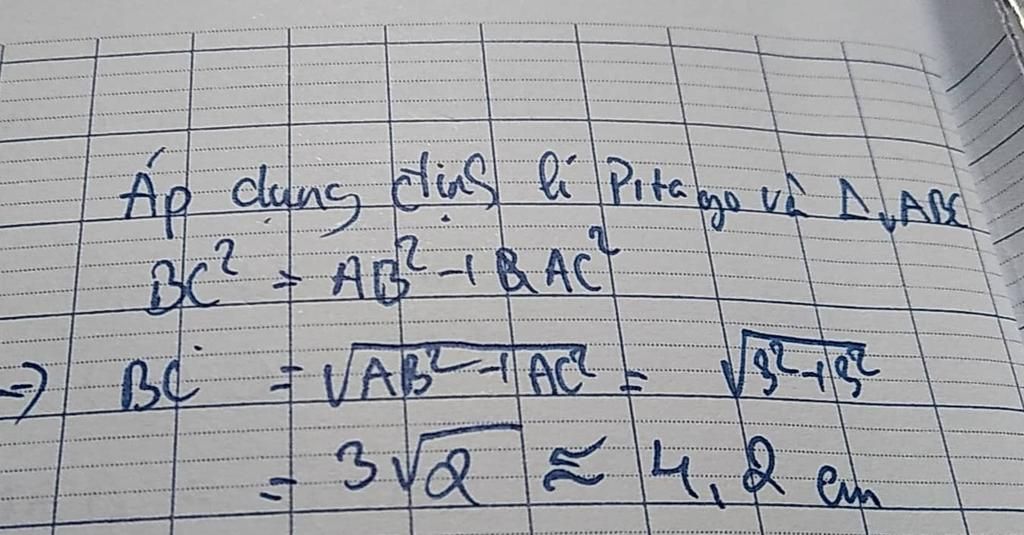 Áp dụng định lí Pitago và Δ ABC
BC² = AB² + AC²
=> BC = √AB² + AC² = √3² + 3²
= 3√2 ≈ 4,2 cm